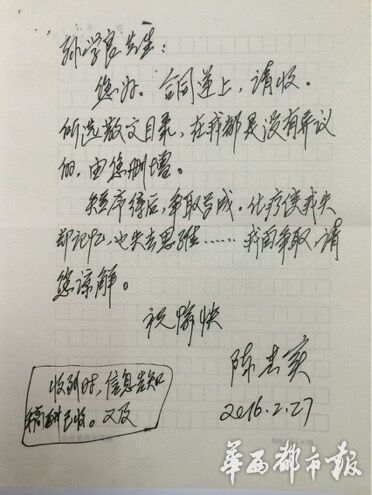 孙学良先生：
您好。合同递上，请收。
所选散文目录，在我都是没有异议
的，由您删增。
短序待后，争取写成，化疗使我失
却记忆，也失去思维……我争取，请
您谅解。
祝愉快
陈忠实
2016.2.27
收到时，信息告知
已收。又及
华西都市报